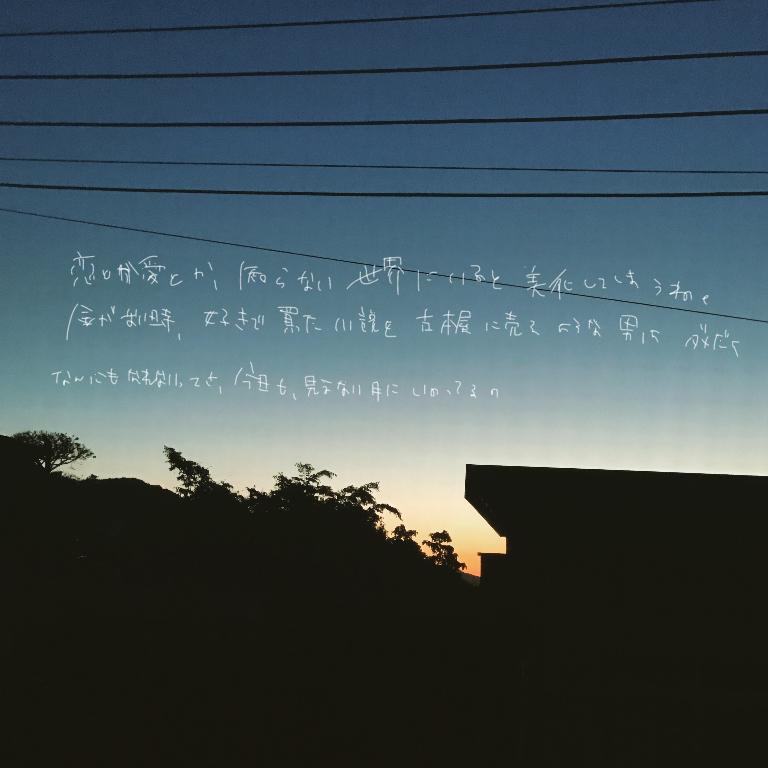 恋とか愛とか、知らない世界にいると美化してしまうわ。
金がない時、好きで買った小説を古本屋に売るような男は ダメだって
なんにもなれないってさ、今日も、見えない月にいのってるの